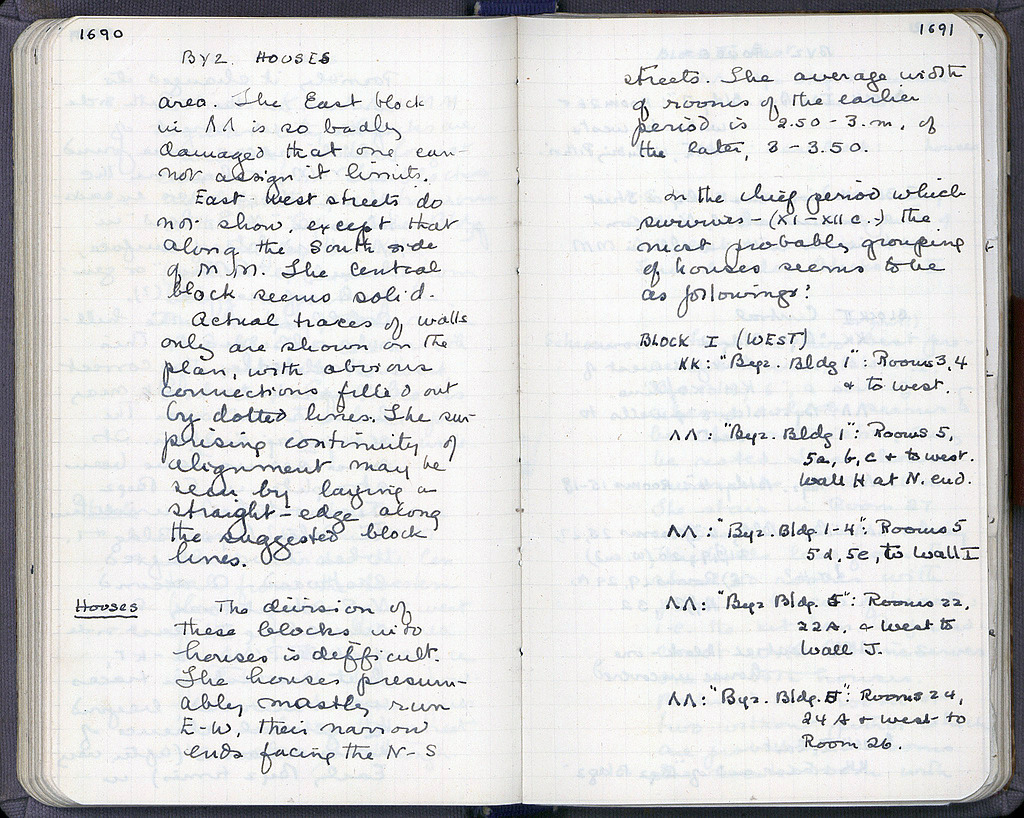 1690
BYZ. HOUSES
area. The East block
in ΛΛ is so badly
damaged that one can-
not assign it limits.
East west streets do
not show, except that
along the South side
of MM. The central
block seems solid.
Actual traces of walls
only are shown on the
plan, with obvious
connections filled out
by dotted lines. The sur-
prising continuity of
alignment may be
seen by laying a
straight-edge along
the suggested block
lines.
Houses
The division of
these blocks into
houses is difficult.
The houses presum-
ably mostly run
E-W, their narrow
ends facing the N-S
1691
streets. The average width
of rooms of the earlier
period is 2.50-3.m, of
the later, 3-3.50.
In the chief period which
survives - (XI-XII c.) the
most probable grouping
of houses seems to be
as followings:
BLOCK I (WEST)
KK: "Byz. Bldg 1": Rooms 3,4
+ to west.
ΛΛ: "Byz. Bldg 1": Rooms 5,
5a, b, c + to west.
Wall H at N. end.
ΛΛ: "Byz. Bldg 1-4": Rooms 5
5d, 5e, to Wall I
ΛΛ: "Byz Bldg. 5": Rooms 22,
22A, + West to
Wall J.
ΛΛ: "Byz. Bldg. 5": Rooms 24,
24A + west to
Room 26.